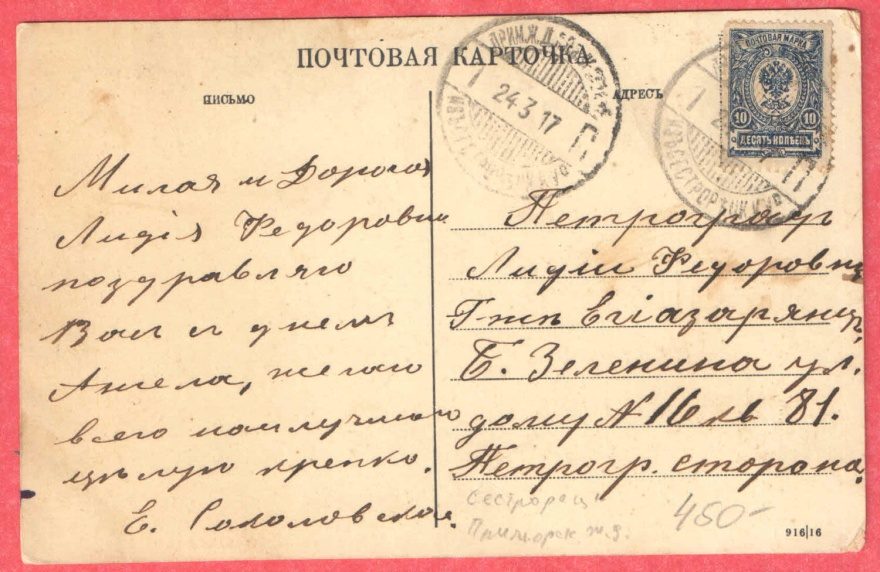 ПОЧТОВАЯ КАРТОЧКА
ПИСЬМО
АДРЕСЪ
ПОЧТОВАЯ МАРКА
10 10
ДЕСЯТЬ КОПѢЕКЪ
24.3.17
Милая и Дорогая
Лидія Федоровна
поздравляю
Васъ съ днемъ
Ангела, желаю
всего наилучшаго
цѣлую крепко.
Е. Соколовская.
Петроградъ
Лидіи Федоровнѣ
Г-жѣ Егіазарянцъ,
Б. Зеленина ул.
дому № 16 кв 81.
Петрогр. сторона.
Сестрорецк
Приморск ж.д.
450-
916|16